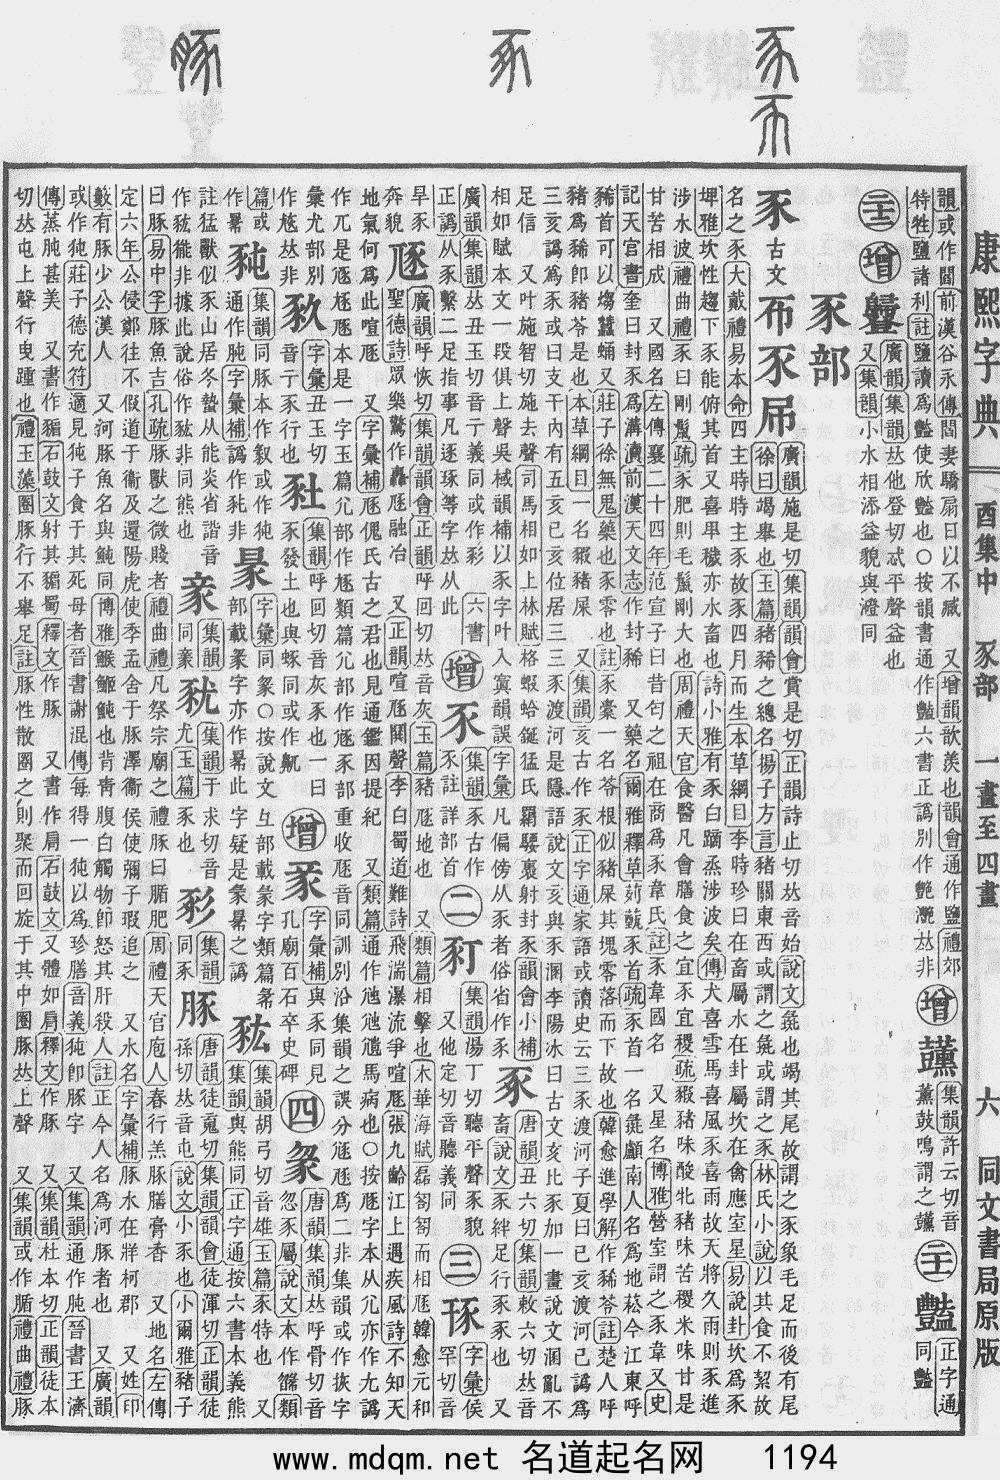 康熙字典 酉集中 豕部 一畫至四畫 六 同文書局原版
韻或作閻前漢谷永傳閻妻驕扇日以不臧 又增韻歆羨也韻會通作鹽禮郊
特牲鹽諸利註鹽讀爲豔使欣豔也○按韻書通作豔六書正譌別作艷灔𠀤非
增 集韻許云切音薰鼓鳴謂之
豔 正字通同豔
增 廣韻集韻𠀤他登切忒平聲益也
又集韻小水相添益貌與澄同
豕部
豕 古文
廣韻施是切集韻韻會賞是切正韻詩止切𠀤音始說文彘也竭其尾故謂之豕象毛足而後有尾
徐曰竭舉也玉篇豬豨之總名揚子方言豬關東西或謂之彘或謂之豕林氏小說以其食不絜故
名之豕大戴禮易本命四主時時主豕故豕四月而生本草綱目李時珍曰在畜屬水在卦屬坎在禽應室星易說卦坎爲豕
埤雅坎性趨下豕能俯其首又喜卑穢亦水畜也詩小雅有豕白蹢烝涉波矣傳犬喜雪馬喜風豕喜雨故天將久雨則豕進
涉水波禮曲禮豕曰剛鬣疏豕肥則毛鬣剛大也周禮天官食醫凡會膳食之宜豕宜稷疏豭豬味酸牝豬味苦稷米味甘是
甘苦相成 又國名左傳襄二十四年范宣子曰昔匄之祖在商爲豕韋氏註豕韋國名 又星名博雅營室謂之豕韋又史
記天官書奎曰封豕爲溝瀆前漢天文志作封豨 又藥名爾雅釋草茢薽豕首疏豕首一名彘顱南人名爲地菘今江東呼
豨首可以煼蠶蛹又莊子徐無鬼藥也豕零也註豕橐一名苓根似豬屎其塊零落而下故也韓愈進學解作豨苓註楚人呼
豬爲豨卽豬苓是也本草綱目一名豭豬屎 又集韻亥古作豕正字通家語或讀史云三豕渡河子夏曰己亥渡河己譌爲
三亥譌爲豕或曰支干內有五亥已亥位居三三豕渡河是隱語說文亥與豕溷李陽冰曰古文亥比豕加一畫說文溷亂不
足信 又叶施智切施去聲司馬相如上林賦格蝦蛤鋋猛氏羂騕褭射封豕韻會小補
相如賦本文一段俱上聲吳棫韻補以豕字叶入寘韻誤字彙凡偏傍从豕者俗省作豕
豖 唐韻丑六切集韻敕六切𠀤音畜說文豕絆足行豖豖也
廣韻集韻𠀤丑玉切音亍義同或作彩 六書
正譌从豕繫二足指事凡逐琢等字𠀤从此
增 集韻豕古作
豕註詳部首
二
豣 集韻湯丁切聽平聲豕貌
又他定切音聽義同
三
豥 字彙侯旱切音
旱豕
奔貌
豗 廣韻呼恢切集韻韻會正韻呼回切𠀤音灰玉篇豬豗地也 又類篇相擊也木華海賦磊匒匌而相豗韓愈元和
聖德詩眾樂驚作轟豗融冶 又正韻喧豗鬨聲李白蜀道難詩飛湍瀑流爭喧豗張九齡江上遇疾風詩不知天
地氣何爲此喧豗 又字彙補豗傀氏古之君也見通鑑因提紀 又類篇通作虺虺𧿁馬病也○按豗字本从尢亦作尢譌
作兀是豗㞀豗本是一字玉篇尢部作㞀類篇尢部作豗豕部重收豗音同訓別沿集韻之誤分豗㞀爲二非集韻或作㧑字
彙尤部別
作㞀𠀤非
字彙丑玉切
音亍豕行也
集韻呼回切音灰豕也一曰
豕發土也與豥同或作豗
增 豙
字彙補與豕同見
孔廟百石卒史碑
四
唐韻集韻𠀤呼骨切音
忽豕屬說文本作 類
篇或
作
豘 集韻同豚本作𢑓或作㹠
通作肫字彙補譌作豼非
字彙同彖○按說文互部載彖字類篇𢑑
部載彖字亦作此字疑是彖之譌
集韻胡弓切音雄玉篇豕特也 又
集韻與熊同正字通按六書本義熊
註猛獸似豕山居冬蟄从能炎省諧音
作豵能非據此說俗作豵非同熊也
集韻
同豙
豞 集韻于求切音
尤玉篇豕也
豛 集韻
同豕
豚 唐韻徒䰟切集韻韻會徒渾切正韻徒
孫切𠀤音屯說文小豕也小爾雅豬子
曰豚易中孚豚魚吉孔疏豚獸之微賤者禮曲禮凡祭宗廟之禮豚曰腯肥周禮天官庖人春行羔豚膳膏香 又地名左傳
定六年公侵鄭往不假道于衞及還陽虎使季孟舍于豚澤衞侯使彌子瑕追之 又水名字彙補豚水在牂柯郡 又姓印
數有豚少公漢人 又河豚魚名與魨同博雅鯸䱌魨也背靑腹白觸物卽怒其肝殺人註正今人名爲河豚者也 又廣韻
或作㹠莊子德充符適見㹠子食于其死母者晉書謝混傳每得一㹠以爲珍膳音義㹠卽豚字 又集韻通作肫晉書王濟
傳蒸肫甚美 又書作豘石鼓文射其豜蜀釋文作豚 又書作肩石鼓文又體如肩釋文作豚 又集韻杜本切正韻徒本
切𠀤屯上聲行曳踵也禮玉藻圈豚行不舉足註豚性散圈之則聚而回旋于其中圈豚𠀤上聲 又集韻或作腯禮曲禮豚
www.mdqm.net 名道起名网 1194